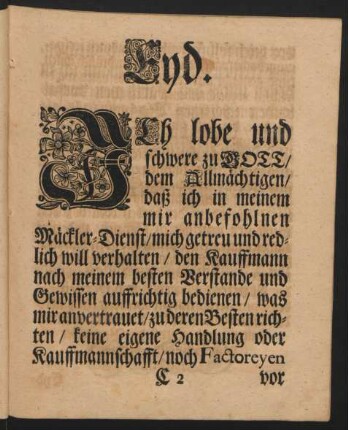 Eyd.
ICh lobe und
schwere zu GOTT/
dem Allmächtigen/
daß ich in meinem
mir anbefohlnen
Mäckler-Dienst/mich getreu und red-
lich will verhalten / den Kauffmann
nach meinem besten Verstande und
Gewissen auffrichtig bedienen / was
mir anvertrauet/zu deren Besten rich-
ten / keine eigene Handlung oder
Kauffmannschafft/noch Factoreyen
C 2 vor